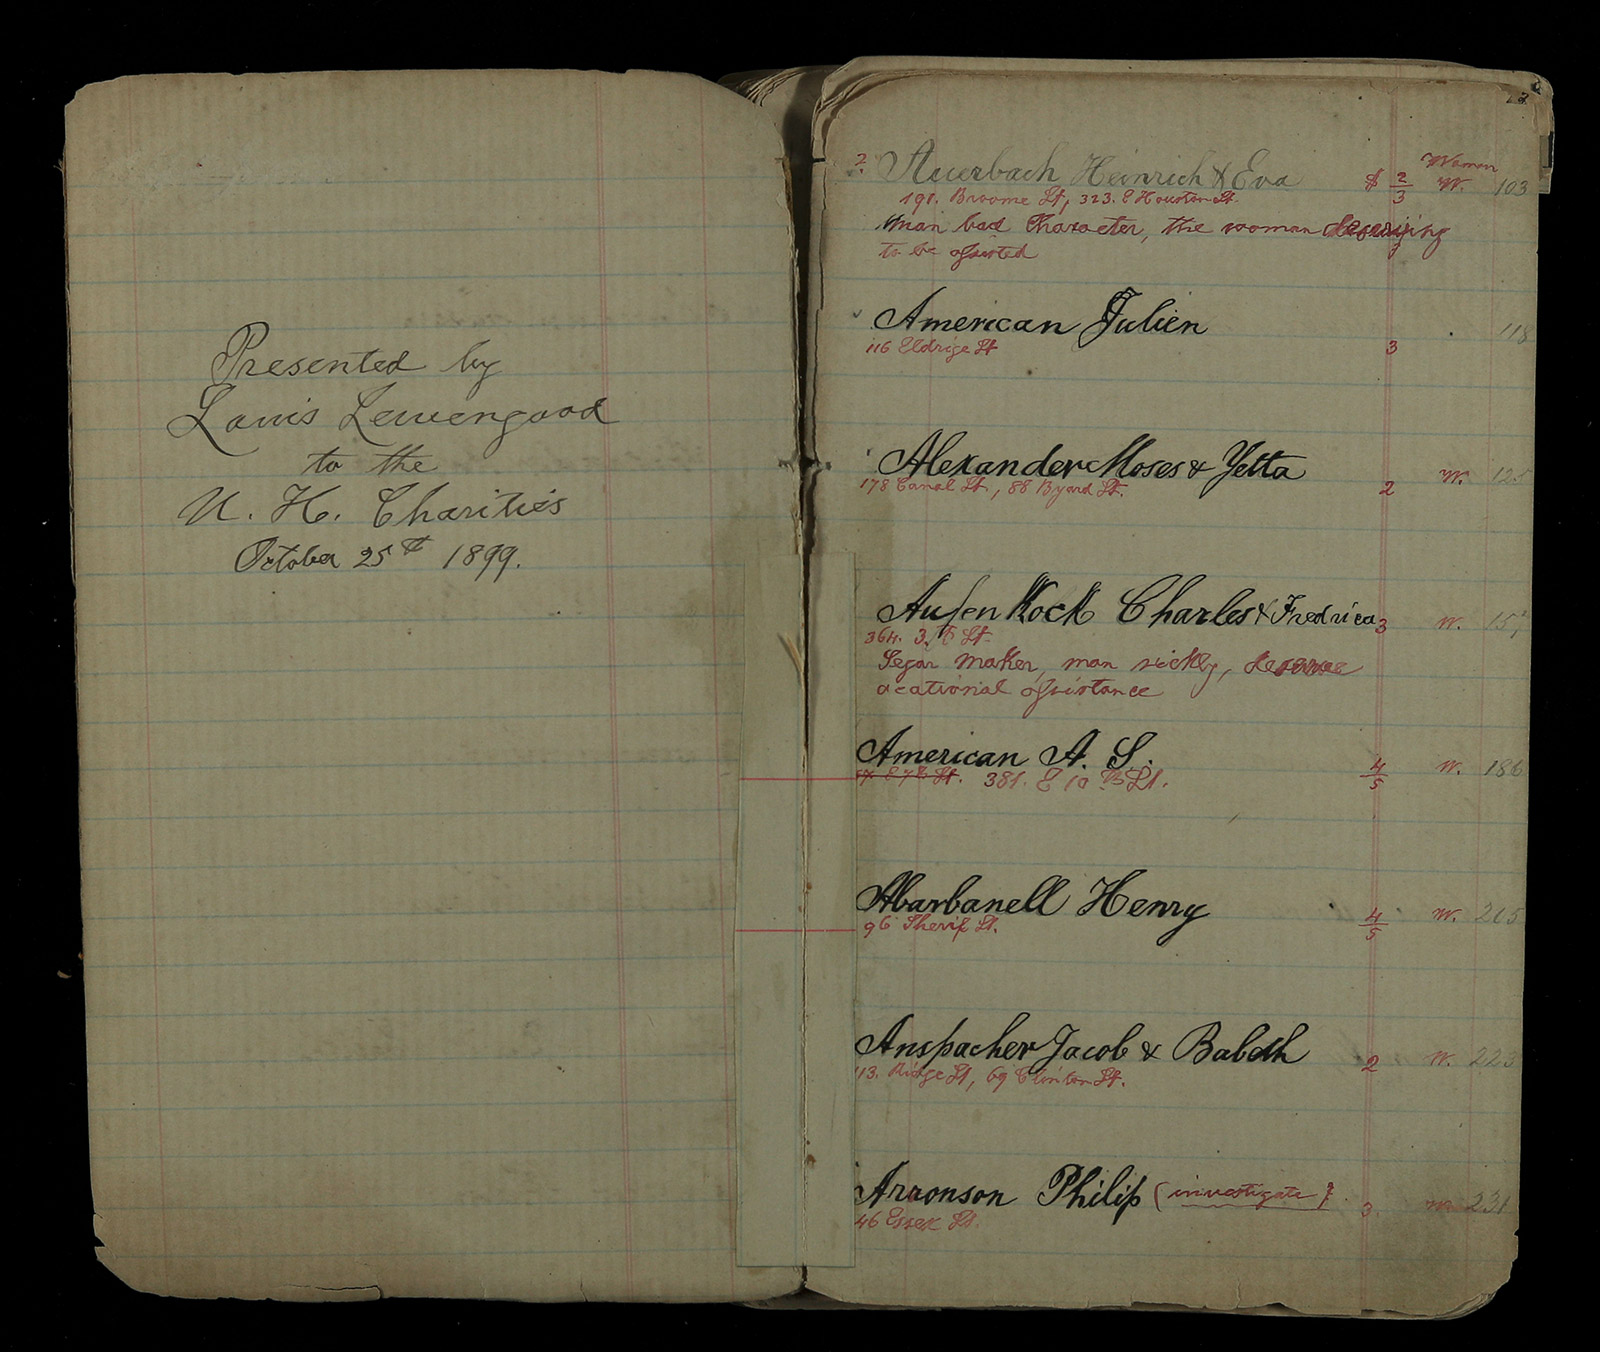 Presented by
Louis Lewengood
to the
U. H. Charities
October 25th 1899.
Woman
2. Auerbach Heinrich & Eva $ 2/3 W. 103
191. Broome St, 323. E Houston St.
Man bad Character, the woman deserving
to be assisted
American Julien 118
116 Eldrige St 3
Alexander Moses & Yetta
178 Canal St., 88 Byard St. 2 W. 125
Aussenkock Charles & Fredrica 3 W.
364. 3. St
Segar Maker, man sickly, deserve
acational assistance
American A. S.
381. E 10 th St. 4/5 W. 186
Abarbanell Henry
96 Sherif St. 4/5 W. 205
Anspacher Jacob & Babeth
113. Ridge St, 69 Clinton St. 2 W. 223
Arronson Philip (investigate) 3. W. 231
46 Essex St.